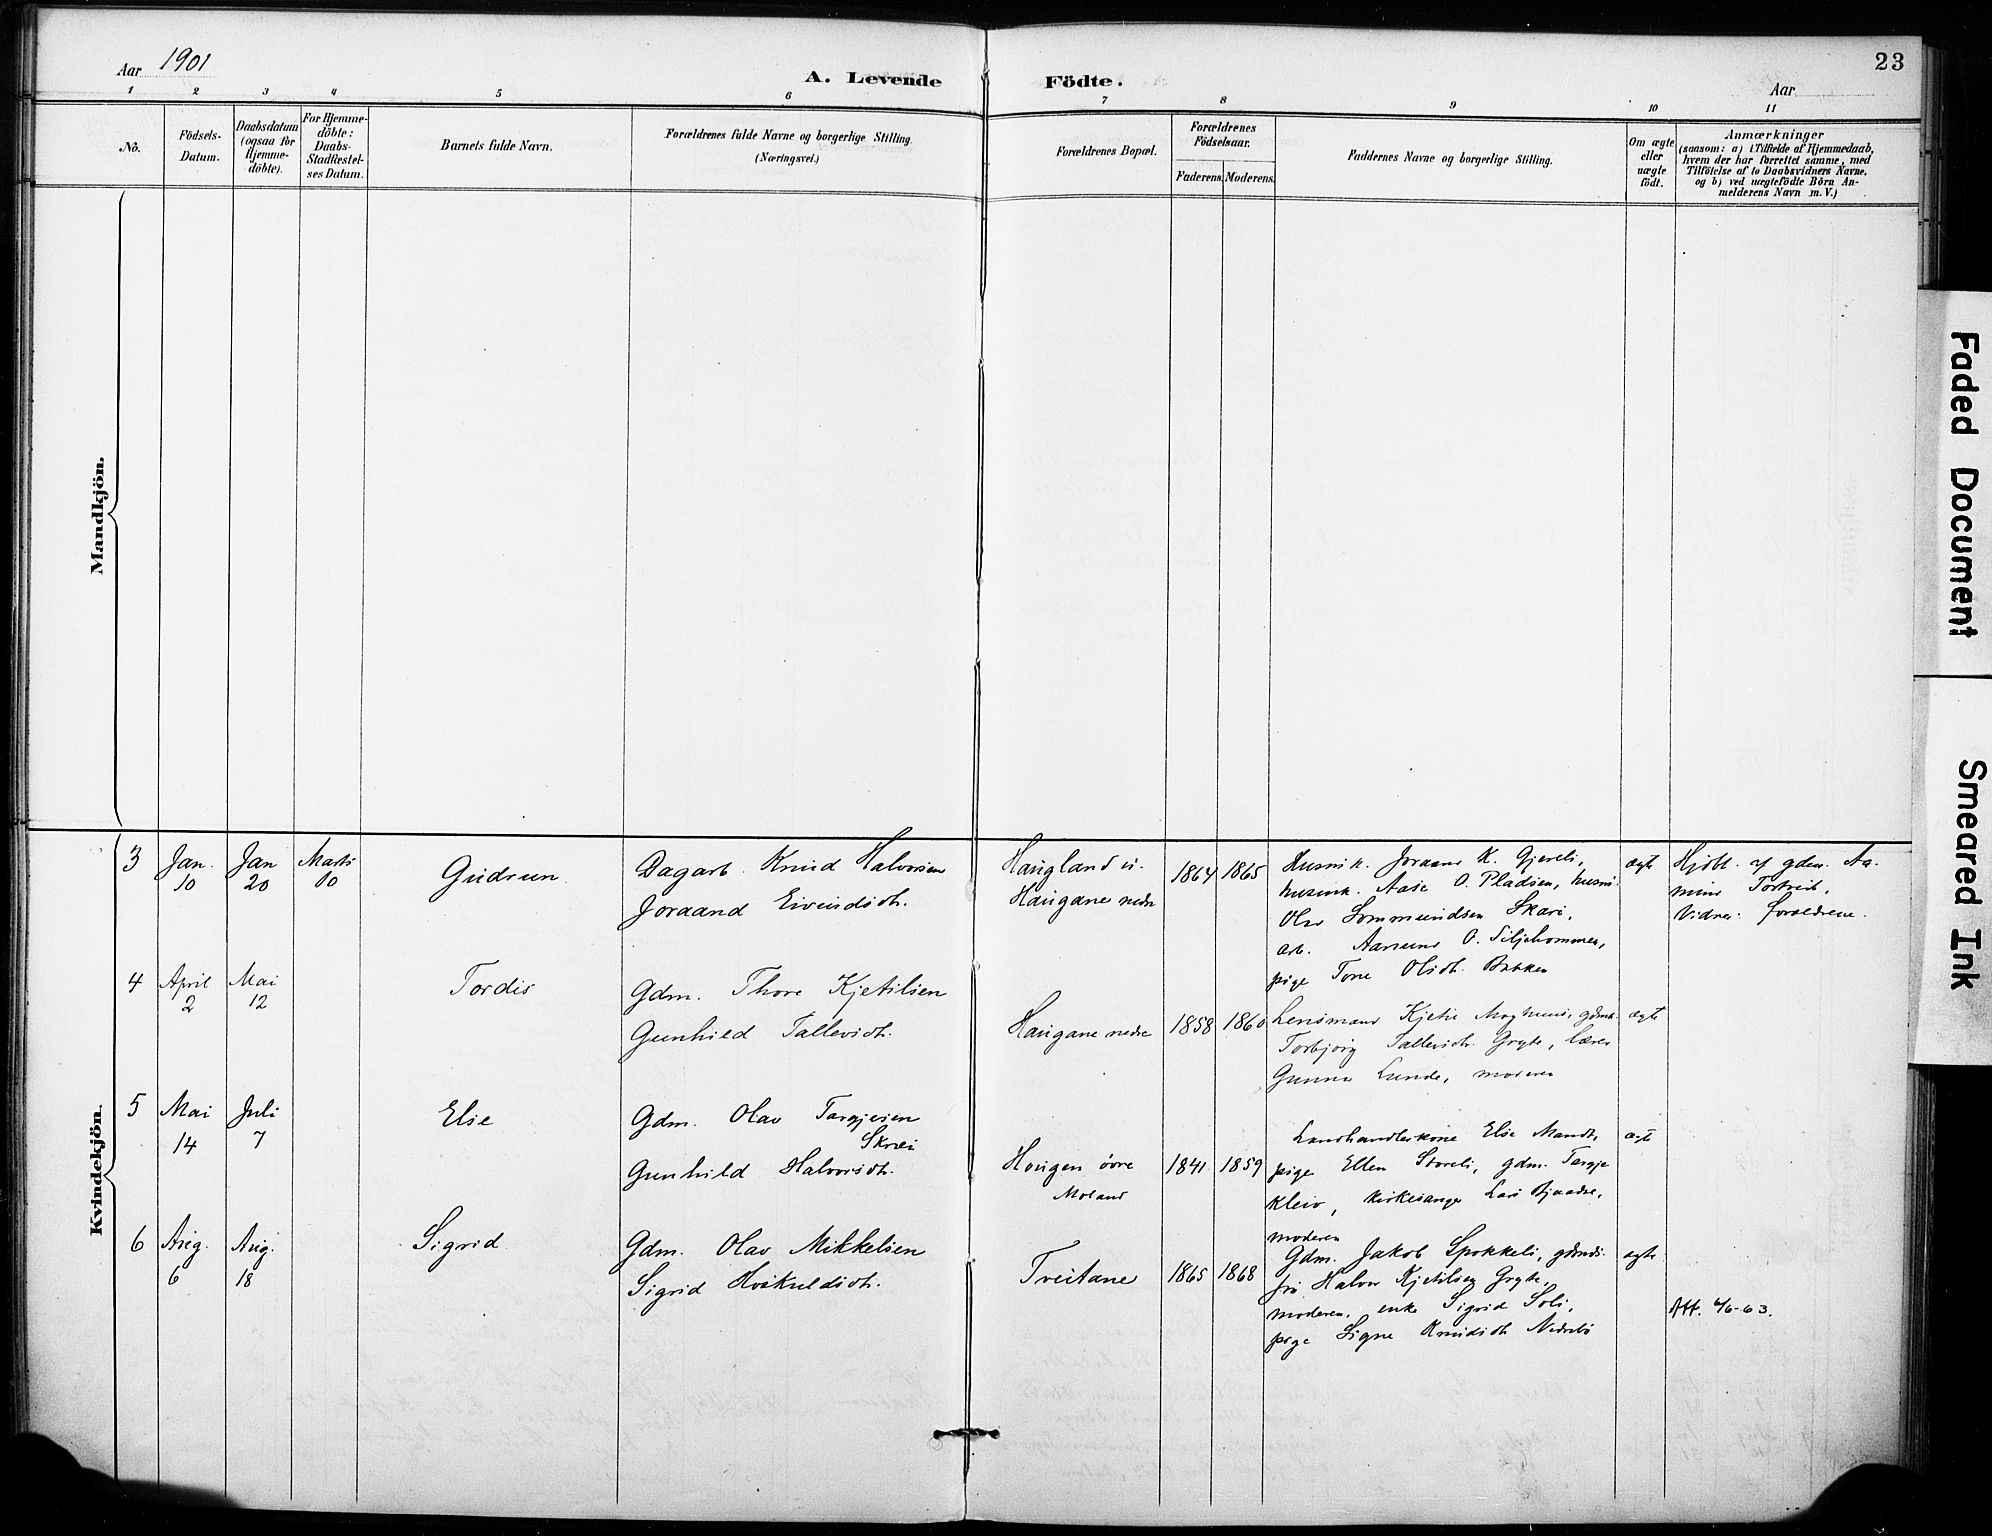 23
Aar 1901
A. Levende Födte.
Aar
1 2 3 4 5 6 7 8 9 10 11
No.
Födsels-Datum.
Daabsdatum (ogsaa for Hjemme-döbte).
For Hjemme-döbte: Daabs-Stadfæstel-ses Datum.
Barnets fulde Navn.
Forældrenes fulde Navne og borgerlige Stilling.
(Næringsvei.)
Forældrenes Bopæl.
Forældrenes Födselsaar.
Faderens. Moderens.
Faddernes Navne og borgerlige Stilling.
Om ægte eller uægte födt.
Anmærkninger
(saasom: a) i Tilfælde af Hjemmedaab,
hvem der har forrettet samme, med
Tilföielse af to Daabsvidners Navne,
og b) ved uægtefödte Börn An-
melderens Navn m. V.)
Mandkjön.
Kvindekjön.
3 Jan. 10 Jan 20 Marts 10 Gudrun
Dagarb. Knud Halvorsen
Joraand Eivindsdtr.
Haugland u.
Haugane nedre
1864 1865
Husmk. Joraand K. Gjereli,
husmk. Aase O. Pladsen, husm.
Olav Sommundsen Skari,
arb. Aamund O. Siljehommen,
pige Tone Olsdtr. Bakken
ægte
Hjdbt. af gdm. Aa-
mund Tortveit.
Vidner: forældrene.
4 April 2 Mai 12 Tordis
Gdm. Thore Kjetilsen
Gunhild Tallevsdtr.
Haugane nedre 1858 1860
Lensmand Kjetil Moghuus, gdmk.
Torbjörg Tallevsdtr. Gryte, lærer
Gunnar Lunde, moderen
ægte
5 Mai 14 Juli 7 Else
Gdm. Olav Targjesen
Skræi
Gunhild Halvorsdtr.
Haugen övre
Moland
1841 1859
Landhandlerkone Else Mandt,
pige Ellen Storeli, gdm. Targje
Kleiv, kirkesanger Lars Bjaadne,
moderen
ægte
6 Aug. 6 Aug. 18 Sigrid
Gdm. Olav Mikkelsen
Sigrid Hoskuldsdtr.
Tveitane 1865 1868
Gdm. Jakob Spokkeli, gdmds.
fru Halvor Kjetilsen Gryte,
moderen, enke Sigrid Soli,
pige Signe Knudsdtr. Nedrebö
ægte
Att. 4/6-63.
Faded Document
Smeared Ink